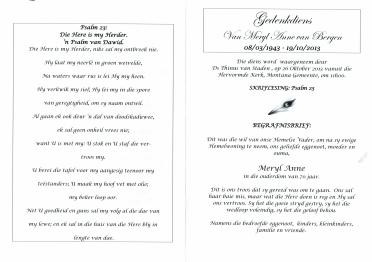 Psalm 23:
Die Here is my Herder.
'n Psalm van Dawid.
Die Here is my Herder, niks sal my ontbreek nie.
Hy laat my neerlê in groen weivelde,
Na waters waar rus is lei Hy my heen.
Hy verkwik my siel, Hy lei my in die spore
van geregtigheid, om sy naam ontwil.
Al gaan ek ook deur 'n dal van doodskaduwee,
ek sal geen onheil vrees nie;
want U is met my: U stok en U staf die ver-
troos my.
U berei die tafel voor my aangesig teenoor my
teëstanders; U maak my hoof vet met olie;
my beker loop oor.
Net U goedheid en guns sal my volg al die dae van
my lewe; en ek sal in die huis van die Here bly in
lengte van dae.
Gedenkdiens
Van Meryl Anne van Bergen
08/03/1943 - 19/10/2013
Die diens word waargeneem deur
Ds Thinus van Staden, op 26 Oktober 2013 vanuit die
Hervormde Kerk, Montana Gemeente, om 11h00.
SKRIFLESING: Psalm 23
BEGRAFNISBRIEF:
Dit was die wil van onse Hemelse Vader, om na sy ewige
Hemelwoning te neem, ons geliefde eggenoot, moeder en
ouma,
Meryl Anne
in die ouderdom van 70 jaar.
Dit is ons troos dat sy gereed was om te gaan. Ons sal
haar baie mis, maar wat die Here doen is reg en Hy sal
ons vertroos. Sy het die goeie stryd gestry, sy het die
wedloop voleindig, sy het die geloof behou.
Namens die bedroefde eggenoot, kinders, kleinkinders,
familie en vriende.